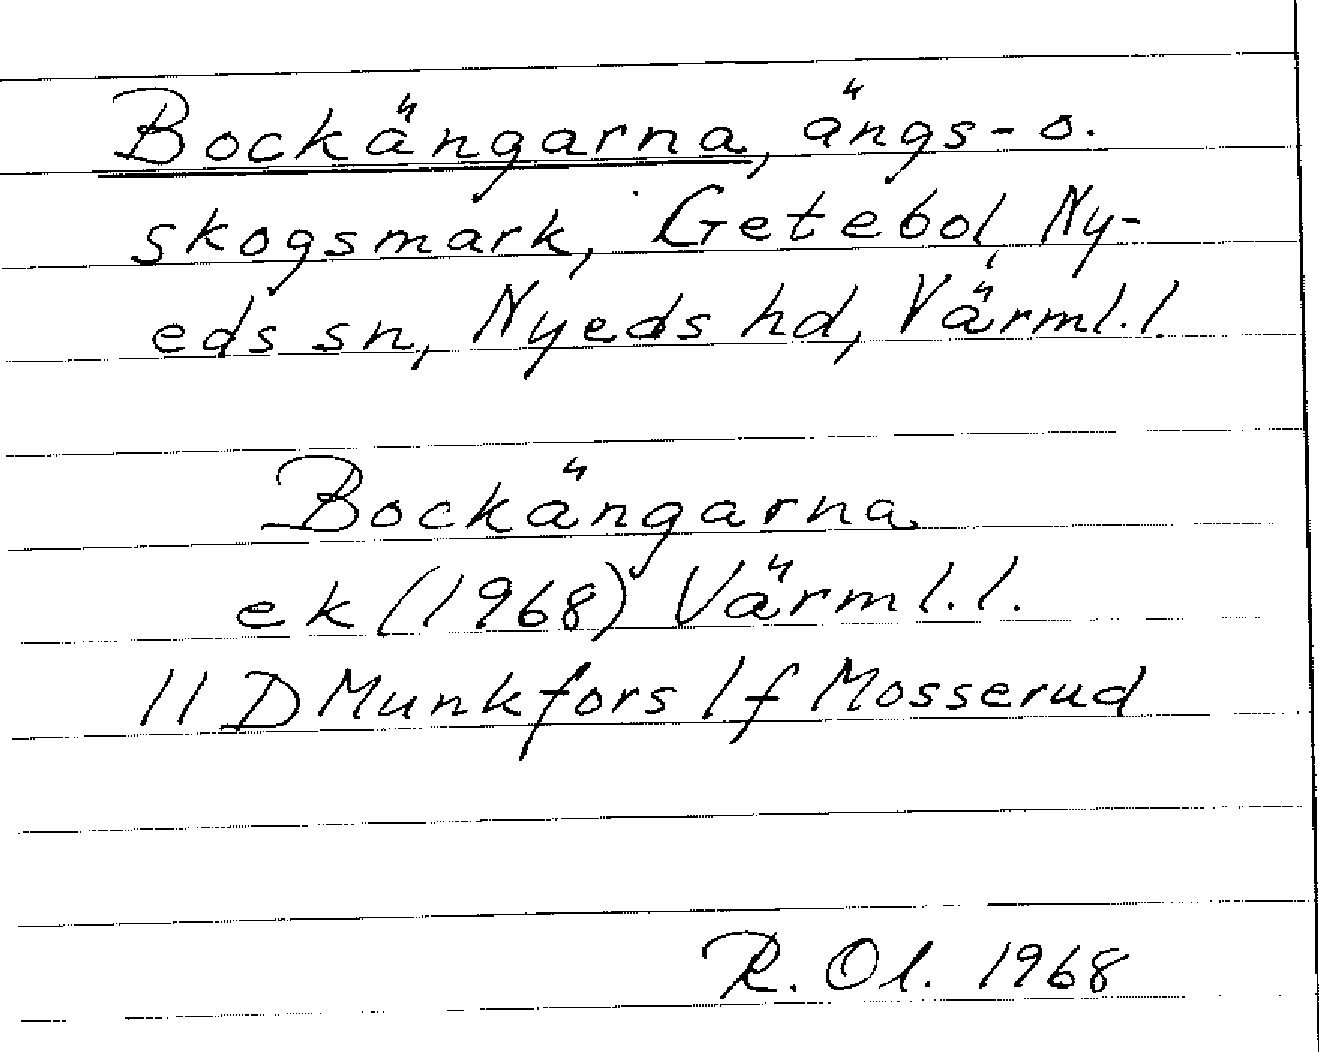 Bockängarna, ängs- o.
skogsmark, Getebol, Ny-
eds sn, Nyeds hd, Värml.l.
Bockängarna
ek (1968) Värml.l.
11 D Munkfors 1f Mosserud
R. Ol. 1968